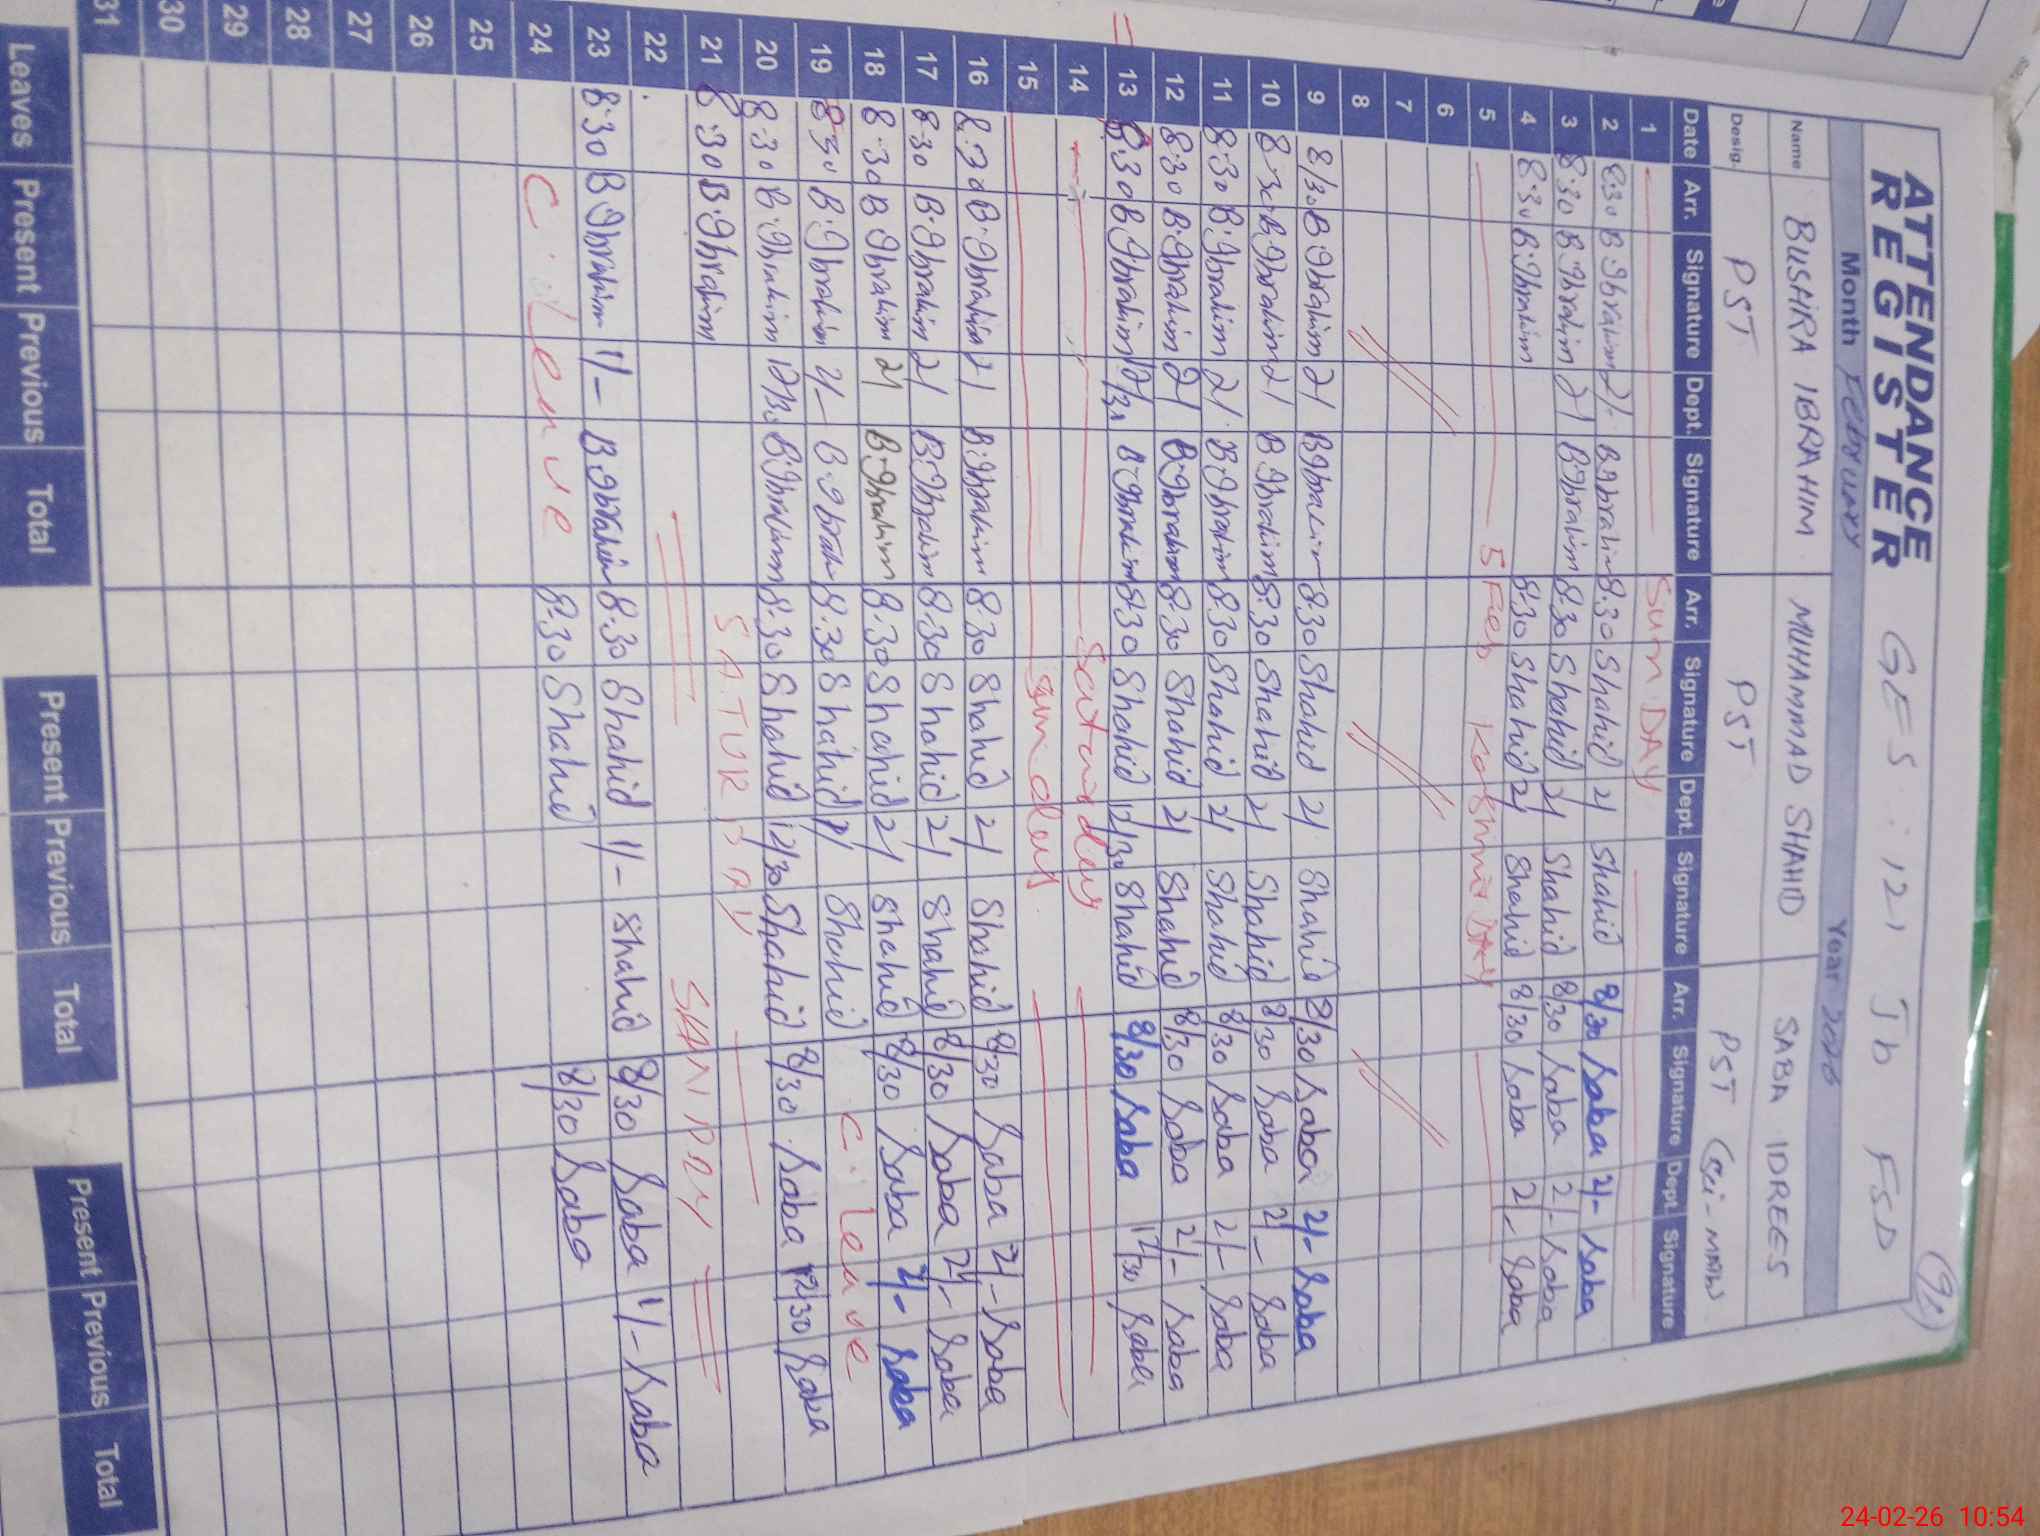 ATTENDANCE REGISTER GES. 121 Jb FSD
Month February Year 2026
Name BUSHRA IBRAHIM MUHAMMAD SHAHID SABA IDREES
Desig. PST PST PST
Date Arr. Signature Dept. Signature Arr. Signature Dept. Signature Arr. Signature Dept. Signature
1 Sun DAY
2 8:30 B.Ibrahim 2/- B.Ibrahim 8:30 Shahid 2/ Shahid 8/30 Saba 2/- Saba
3 8:30 B.Ibrahim 2/ B.Ibrahim 8:30 Shahid 2/ Shahid 8/30 Saba 2/- Saba
4 8:30 B.Ibrahim 8:30 Shahid 2/ Shahid 8/30 Saba 2/- Saba
5 5 Feb Kashmir DAY
6
7
8
9 8/30 B Ibrahim 2/ B Ibrahim 8:30 Shahid 2/ Shahid 8/30 Saba 2/- Saba
10 8:30 B.Ibrahim 2/ B Ibrahim 8:30 Shahid 2/ Shahid 8/30 Saba 2/- Saba
11 8:30 B.Ibrahim 2/ B.Ibrahim 8:30 Shahid 2/ Shahid 8/30 Saba 2/- Saba
12 8:30 B.Ibrahim 2/ B.Ibrahim 8:30 Shahid 2/ Shahid 8/30 Saba 2/- Saba
13 8:30 B Ibrahim 12/30 B.Ibrahim 8:30 Shahid 12/30 Shahid 8/30 Saba 12/30 Saba
14 Saturday
15 Sunday
16 8:30 B.Ibrahim 2/ B.Ibrahim 8:30 Shahid 2/ Shahid 8/30 Saba 2/- Saba
17 8:30 B.Ibrahim 2/ B.Ibrahim 8:30 Shahid 2/ Shahid 8/30 Saba 2/- Saba
18 8:30 B Ibrahim 2/ B.Ibrahim 8:30 Shahid 2/ Shahid 8/30 Saba 2/- Saba
19 8:30 B.Ibrahim 2/- B.Ibrahim 8:30 Shahid 2/ Shahid C.leave
20 8:30 B.Ibrahim 12/30 B.Ibrahim 8:30 Shahid 12/30 Shahid 8/30 Saba 12/30 Saba
21 8:30 B.Ibrahim SATURDAY
22 SUNDAY
23 8:30 B Ibrahim 1/- B.Ibrahim 8:30 Shahid 1/- Shahid 8/30 Saba 1/- Saba
24 C.Leave 8:30 Shahid 8/30 Saba
25
26
27
28
29
30
31
Leaves Present Previous Total Present Previous Total Present Previous Total
24-02-26 10:54